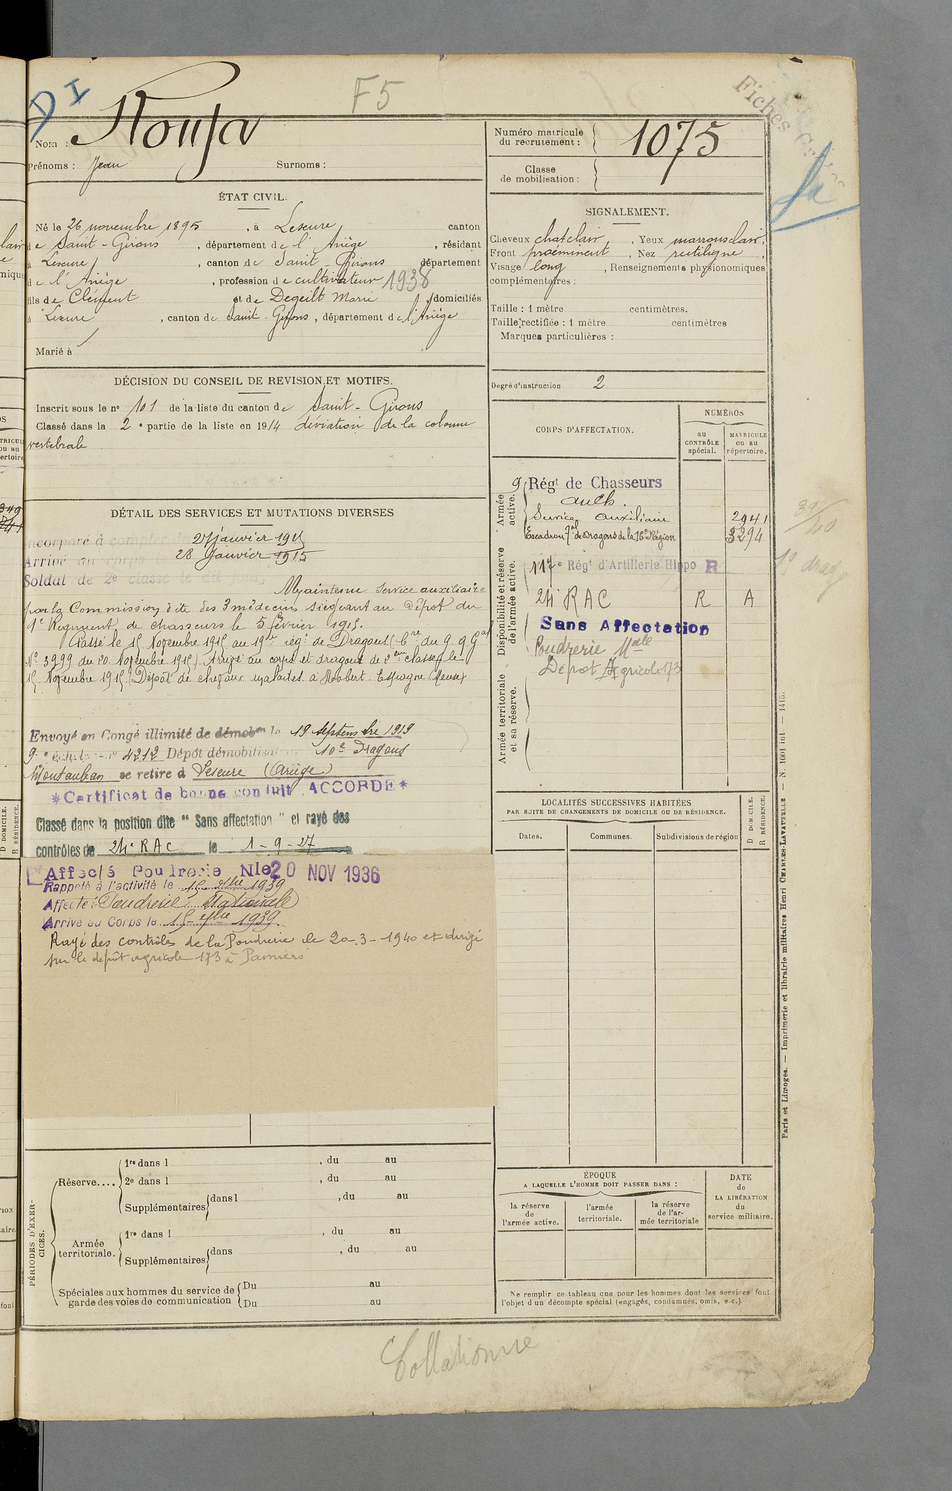 D I
F5
Fiches
Nom : Rouja
Prénoms : Jean Surnoms :
Numéro matricule
du recrutement : 1075
Classe
de mobilisation :
ÉTAT CIVIL.
Né le 26 novembre 1895, à Lescure, canton
de Saint-Girons, département de l'Ariège, résidant
à Lescure, canton de Saint-Girons département
de l'Ariège, profession de cultivateur 1938
fils de Clément et de Degeilt Marie domiciliés
à Lescure, canton de Saint-Girons, département de l'Ariège
Marié à
SIGNALEMENT.
Cheveux chat clair, Yeux marrons clair,
Front proéminent, Nez rectiligne,
Visage long, Renseignements physionomiques
complémentaires :
Taille : 1 mètre centimètres.
Taille rectifiée : 1 mètre centimètres
Marques particulières :
Degré d'instruction 2
DÉCISION DU CONSEIL DE REVISION ET MOTIFS.
Inscrit sous le nº 101 de la liste du canton de Saint-Girons
Classé dans la 2e partie de la liste en 1914 déviation de la colonne
vertebrale
CORPS D'AFFECTATION.
NUMÉROS
AU CONTRÔLE spécial.
MATRICULE OU AU répertoire.
Armée active.
9 Régt de Chasseurs
Auch
Service auxiliaire 2941
Escadron 7e de Dragons de la 16e Région 3294
Disponibilité et réserve de l'armée active.
117e Régt d'Artillerie Hippo R
24e RAC R A
Sans Affectation
Poudrerie Nale
Dépot Agricole 173
Armée territoriale et sa réserve.
DÉTAIL DES SERVICES ET MUTATIONS DIVERSES
Incorporé à compter du 27 janvier 1915
Arrivé au corps le 28 Janvier 1915
Soldat de 2e classe le dit jour,
Maintenu service auxiliaire
par la Commission dite des 3 médecins siégeant au Dépôt du
9e Régiment de chasseurs le 5 février 1915.
Passé le 15 Novembre 1915 au 19e rég. de Dragons
Nº 3999 du 20 Novembre 1915. Arrivé au corps et dragons de 2eme classe le
15 Novembre 1915. Dépôt de chevaux malades à
Envoyé en Congé illimité de démobon le 19 septembre 1919
9e 4212 Dépôt démobilisateur 10e Dragons
Montauban se retire à Lescure (Ariège)
*Certificat de bonne conduite ACCORDÉ*
Classé dans la position dite " Sans affectation " et rayé des
contrôles de 24e RAC le 1-9-27
Affecté Poudrerie Nle 20 NOV 1936
Rappelé à l'activité le 15 7bre 1939
Affecté : Poudrerie Nationale
Arrivé au Corps le 15 7bre 1939.
Rayé des contrôles de la Poudrerie le 20-3-1940 et dirigé
sur le dépôt agricole 173 à Pamiers
LOCALITÉS SUCCESSIVES HABITÉES
PAR SUITE DE CHANGEMENTS DE DOMICILE OU DE RÉSIDENCE.
Dates. Communes. Subdivisions de région
D DOMICILE.
R RÉSIDENCE.
PÉRIODES D'EXERCICES.
Réserve.... 1re dans l , du au
2e dans l , du au
Supplémentaires dans l , du au
Armée territoriale. 1re dans l , du au
Supplémentaires dans , du au
Spéciales aux hommes du service de Du au
garde des voies de communication Du au
ÉPOQUE
A LAQUELLE L'HOMME DOIT PASSER DANS :
la réserve de l'armée active.
l'armée territoriale.
la réserve de l'armée territoriale
DATE de LA LIBÉRATION du service militaire.
Ne remplir ce tableau que pour les hommes dont les services font
l'objet d'un décompte spécial (engagés, condamnés, omis, etc.).
Paris et Limoges. — Imprimerie et librairie militaires Henri CHARLES-LAVAUZELLE
Collationné